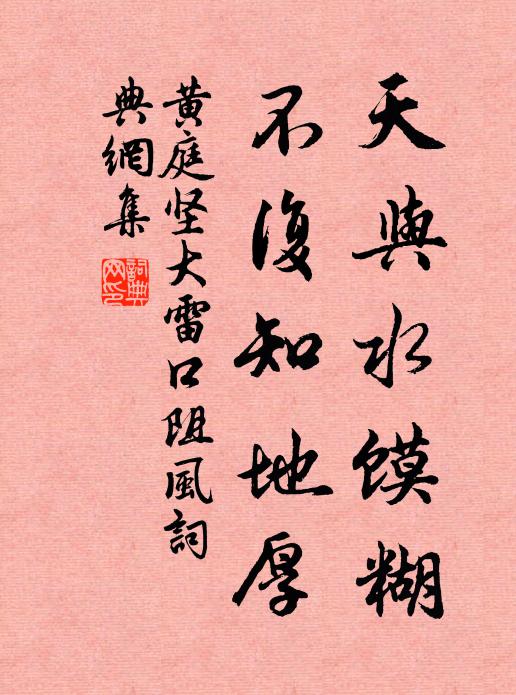 天與水馍糊
不復知地厚
黄庭坚大雷口阻風詞
典網集
詞典
网印